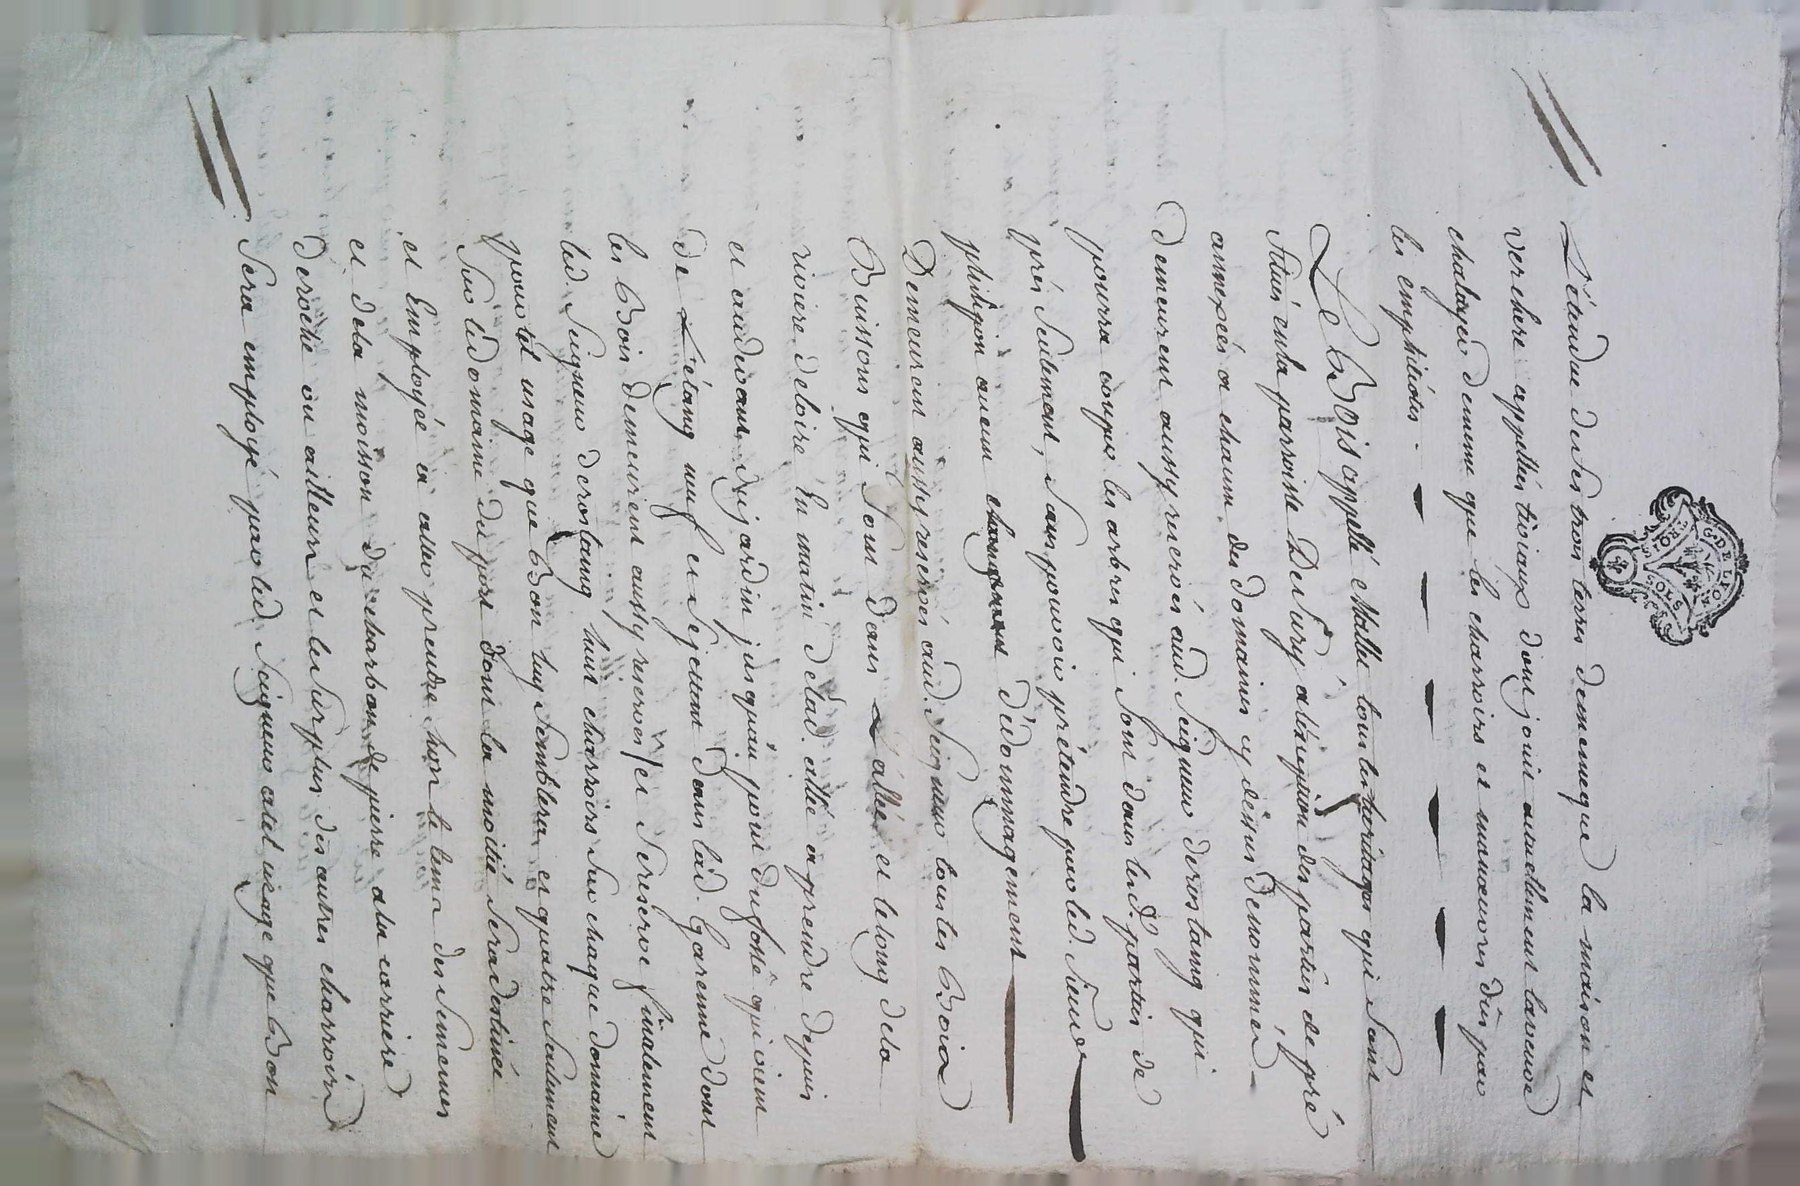 G. DE LION
TROIS SOLS
L'étendue de ses trois terres de meme que la maison et
verchere appellés tivivaux dont jouit actuellement la veuve
chatager de meme que les charroirs et manœuvres dûs par
les emphiteotes.
Le Bois appellé Malla tous les heritages qui sont
situés en la parroisse De Sury a l'exeption des parties de pré
annexées a chacun des domaines cy dessus denommés
demeurent aussy reservés aud. seigneur derostaing qui
pourra couper les arbres qui sont dans lesd. parties de
prés seulement, sans pouvoir prétendre par led. sieur
phlipon aucun d'édommagement
Demeurent aussy reservés aud. Seigneur tous les Bois
Buissons qui sont dans l'allée et le long de la
riviere de loire En matin delad. allé a prendre depuis
et audevant du jardin jusqu'au jour du fossé qui vient
de L'étang neuf et se jettent dans lad. garenne dont
les Bois demeurent aussy reservés / et se reserve finalement
led. Seigneur derostaing huit charroirs sur chaque domaine
pour tel usage que Bon luy semblera et quatre seulement
sur le domaine du port dont la moitié sera destinée
et Employée a aller prendre hors le tems des semences
et de la moisson du charbon de pierre a la carriere
deroche ou ailleurs et le surplus des autres charroirs
Sera employé par led. Seigneur a tel usage que Bon